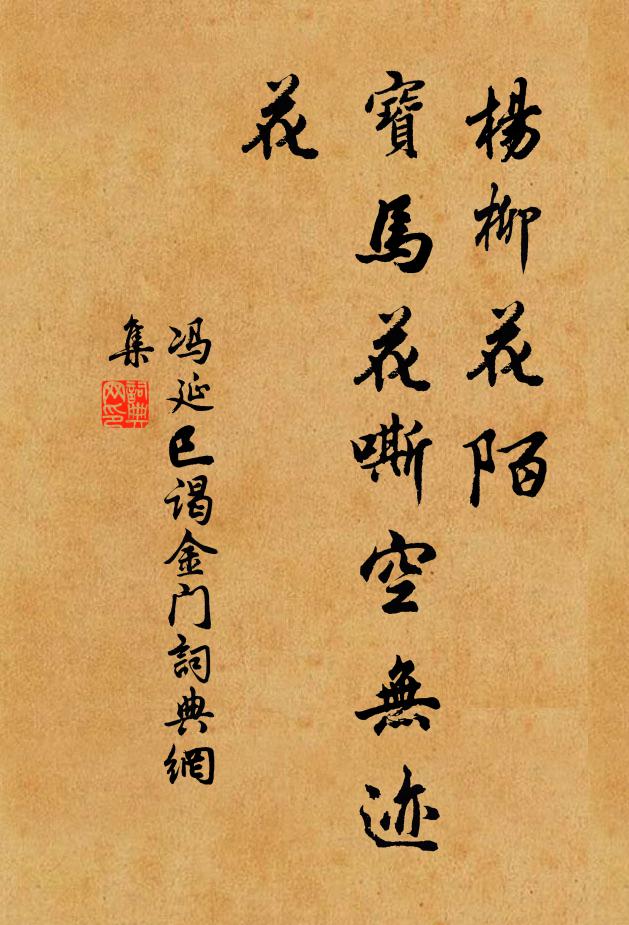 楊柳花陌
寶馬花嘶空無迹
花
冯延巳谒金门詞典網
集
詞典
网印